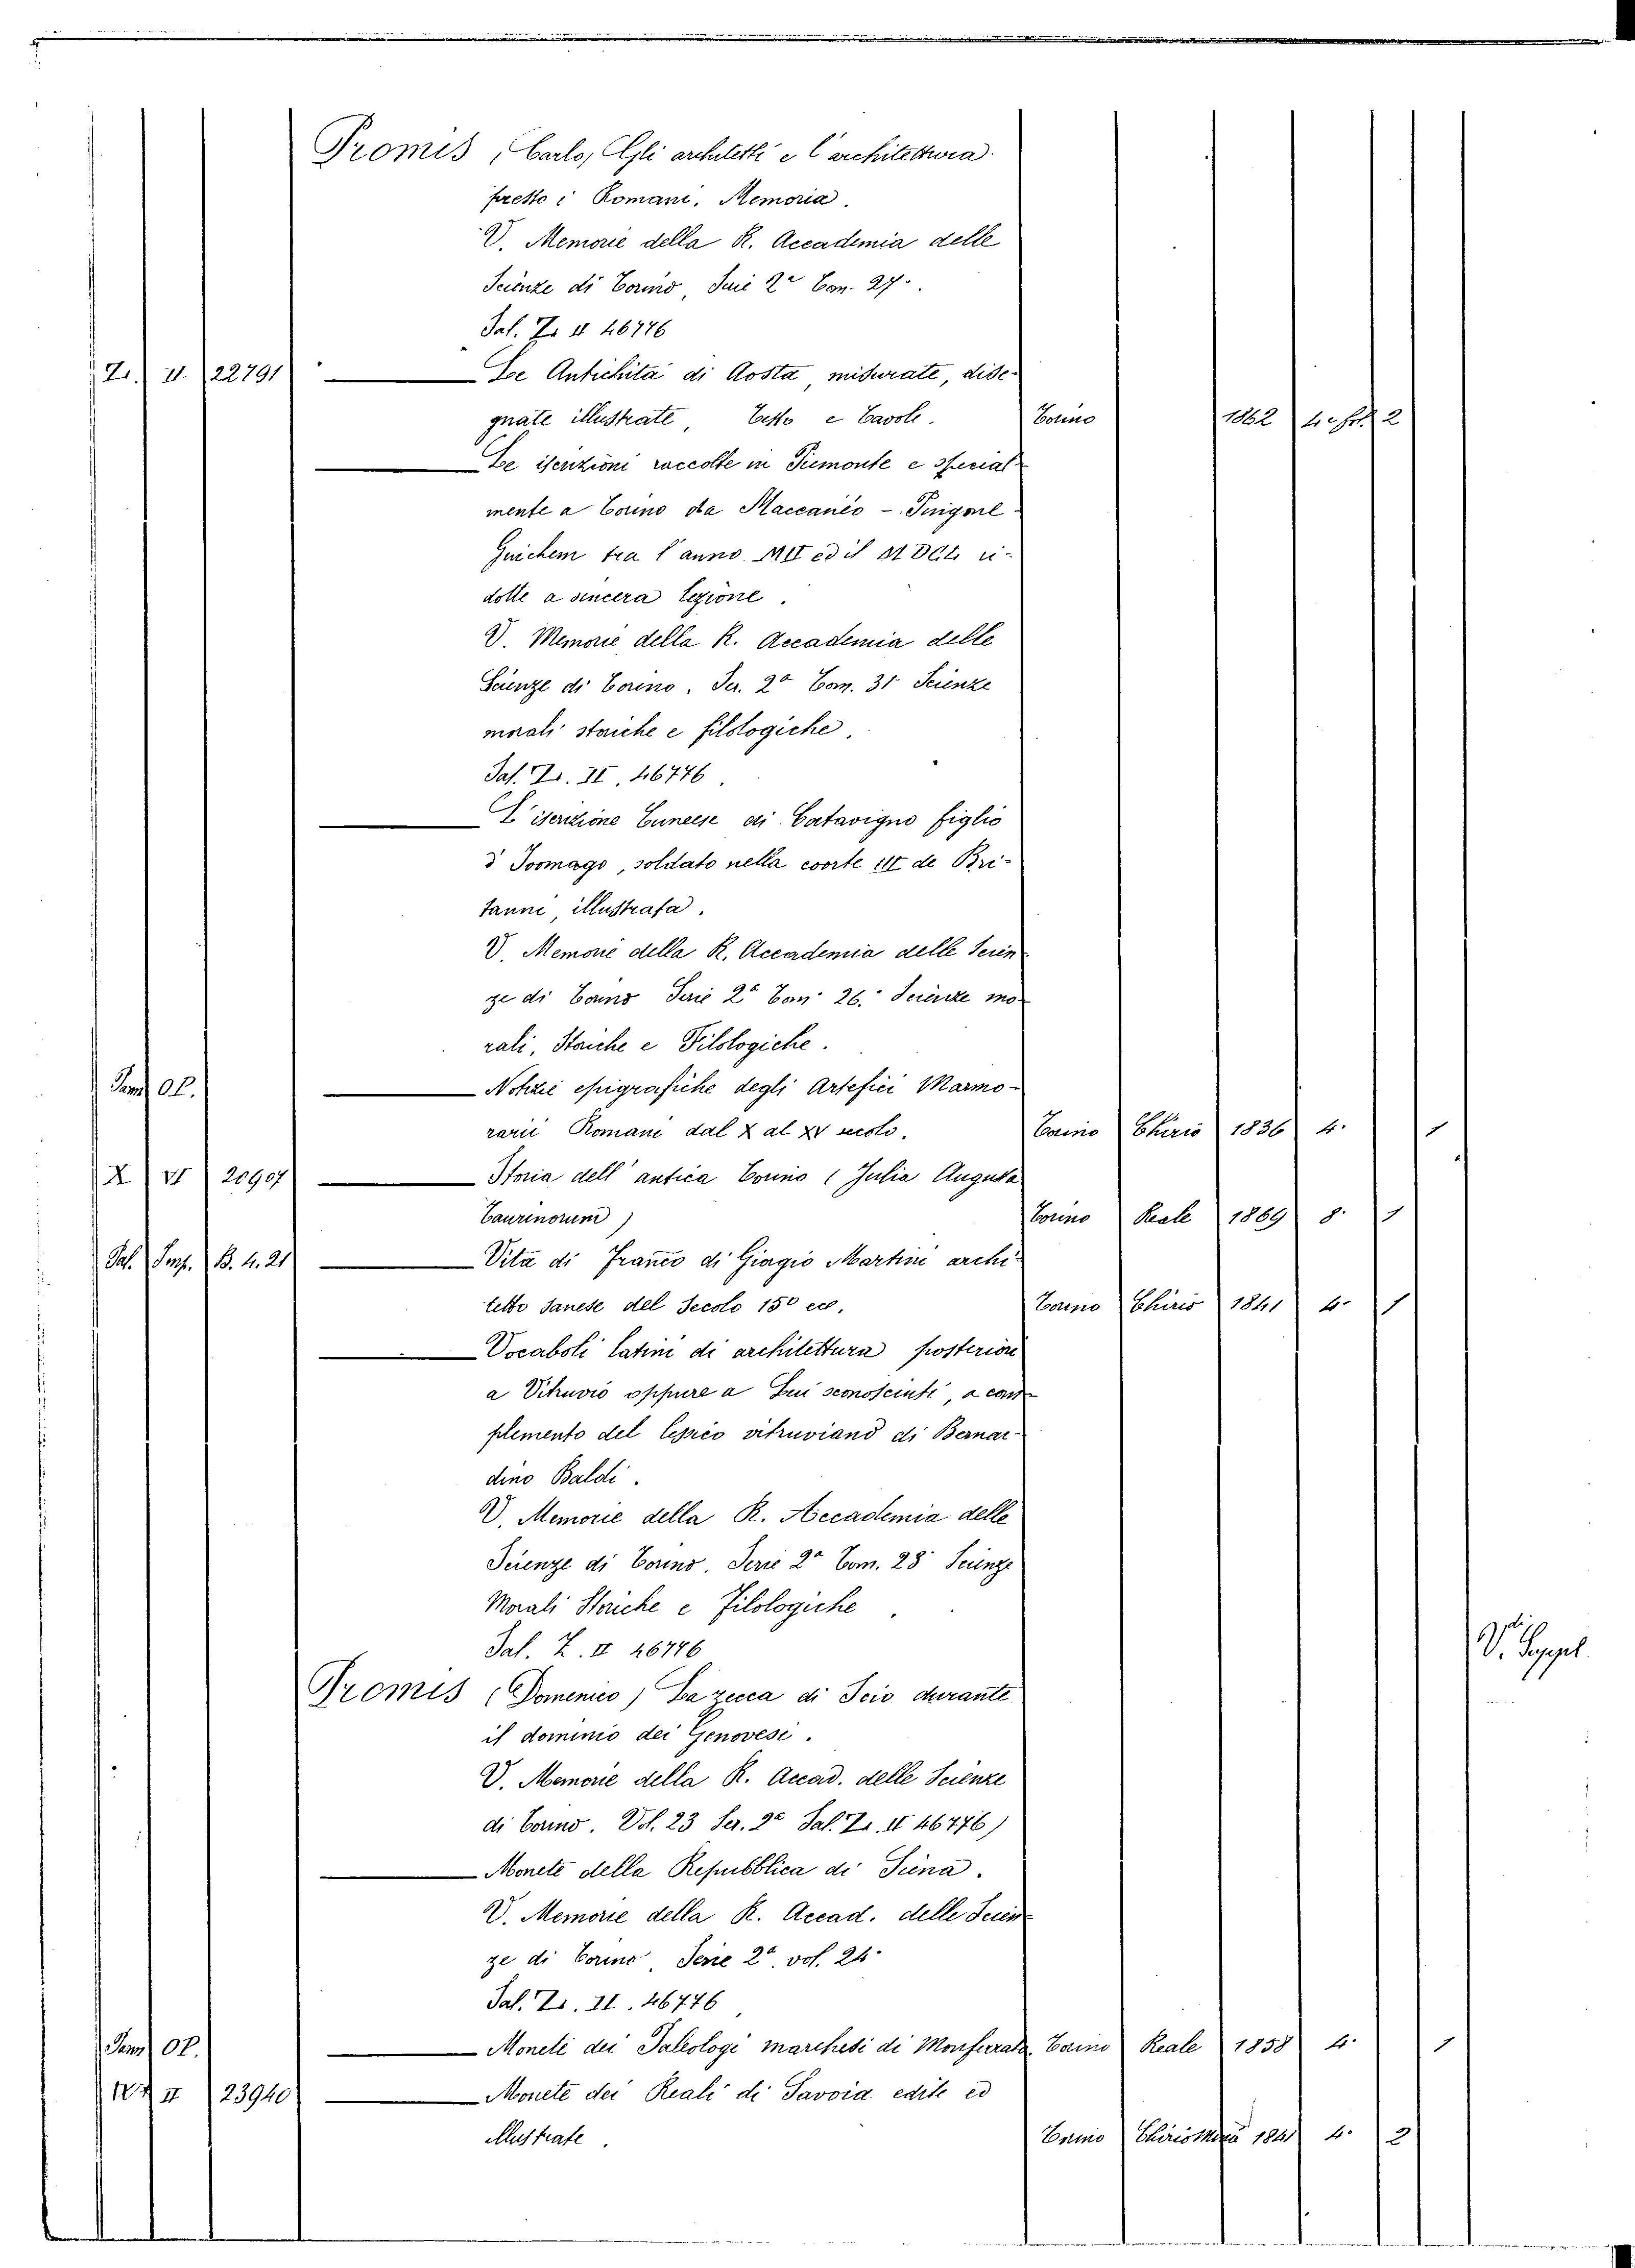 Promis, Carlo, Gli architetti e l'architettura
presso i Romani, Memoria.
V. Memorie della R. Accademia delle
Scienze di Torino, Serie 2a Tom. 27.
Sal. Z. II 46776
Z. II. 22791 Le Antichità di Aosta, misurate, dise-
gnate illustrate, Testo e Tavole. Torino 1862 4. e fol. 2
Le iscrizioni raccolte in Piemonte e special
mente a Torino da Maccaneo - Pingone
Guichem tra l'anno MD ed il MDCL ri-
dotte a sincera lezione.
V. Memorie della R. Accademia delle
Scienze di Torino. Ser. 2a Tom. 31 Scienze
morali storiche e filologiche.
Sal. Z. II. 46776.
L'iscrizione Cuneese di Catavigno figlio
d'Ivomago, soldato nella coorte III de Bri-
tanni, illustrata.
V. Memorie della R. Accademia delle Scien
ze di Torino Serie 2a Tom. 26. Scienze mo
rali, Storiche e Filologiche.
OP. Notizie epigrafiche degli Artefici Marmo-
rarii Romani dal X al XV secolo. Torino Chirio 1836 4. 1
X VI 20907 Storia dell'antica Torino (Julia Augusta
Taurinorum) Torino Reale 1869 8. 1
Sal. Imp. B. 4. 21 Vita di Franco di Giorgio Martini archi-
tetto sanese del Secolo 150 ecc. Torino Chirio 1841 4. 1
Vocaboli latini di architettura posteriori
a Vitruvio oppure a Lui sconosciuti, a com
plemento del lessico vitruviano di Bernar-
dino Baldi.
V. Memorie della R. Accademia delle
Scienze di Torino. Serie 2a Tom. 28 Scienze
Morali Storiche e Filologiche.
Sal. Z. II 46776
Promis (Domenico) La zecca di Scio durante
il dominio dei Genovesi.
V. Memorie della R. Accad. delle Scienze
di Torino. Vol. 23 Ser. 2a Sal. Z. II 46776)
Monete della Repubblica di Siena.
V. Memorie della R. Accad. delle Scien-
ze di Torino, Serie 2a. vol. 24.
Sal. Z. II. 46776
OP. Monete dei Paleologi marchesi di Monferrato. Torino Reale 1858 4. 1
II 23940 Monete dei Reali di Savoia edite ed
illustrate. Torino Chirio 1841 4. 2